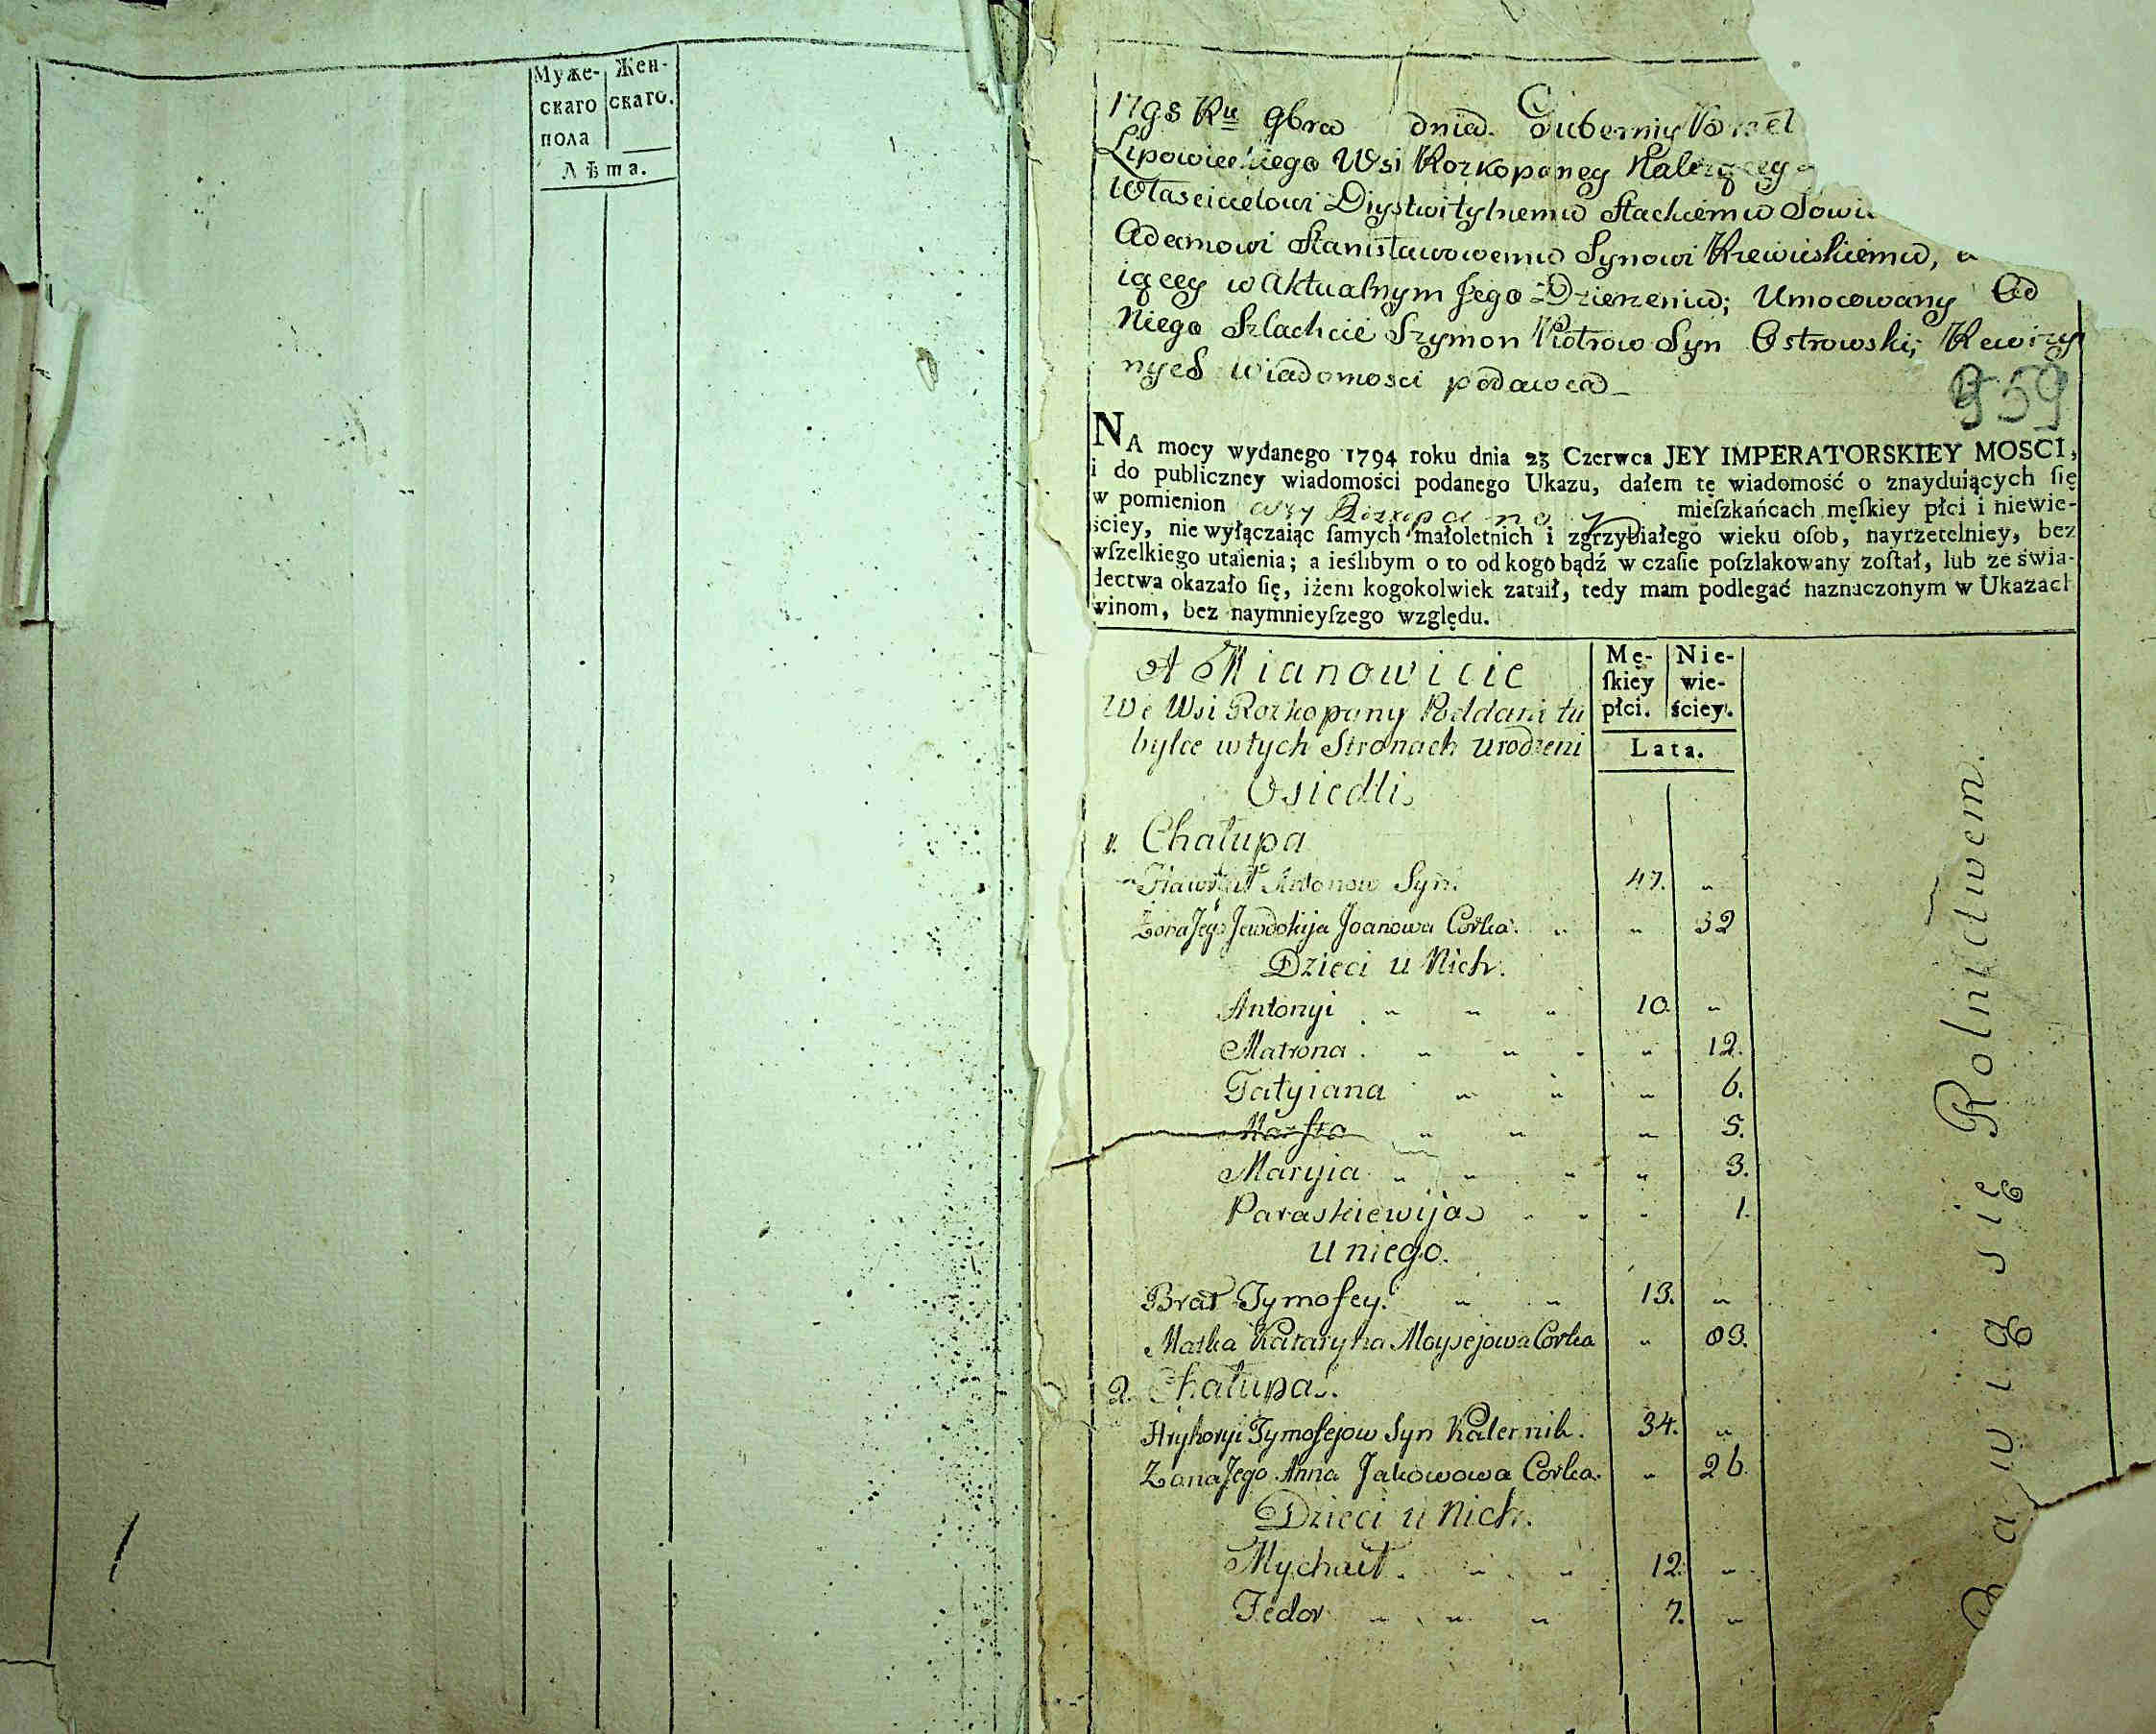 Муже-
скаго
пола
Жен-
скаго.
Лѣта.
1795 Ru 9bra dnia Guberniy
Lipowieckiego Wsi Rozkopaney Należącey
Włascicielowi Diystwitylnemu Stackiemu Sowi
Adamowi Stanisławowemu Synowi Rzewuskiemu, a
iącey w Aktualnym Jego Dzierzeniu; Umocowany Od
Niego Szlachcic Szymon Piotrow Syn Ostrowski, Rewizy
nych wiadomosci podawca
959
NA mocy wydanego 1794 roku dnia 23 Czerwca JEY IMPERATORSKIEY MOSCI,
i do publiczney wiadomości podanego Ukazu, dałem tę wiadomość o znayduiących ſię
w pomienion Rozkopaney mieſzkańcach męſkiey płci i niewie-
ściey, nie wyłączaiąc ſamych małoletnich i zgrzybiałego wieku oſob, nayrzetelniey, bez
wſzelkiego utaienia; a ieślibym o to od kogo bądź w czaſie poſzlakowany zoſtał, lub ze świa-
dectwa okazało ſię, iżem kogokolwiek zataił, tedy mam podlegać naznaczonym w Ukazach
winom, bez naymnieyſzego względu.
A Mianowicie
Mę-
ſkiey
płci.
Nie-
wie-
ściey.
Lata.
We Wsi Rozkopany Poddani tu
bylce w tych Stronach urodzeni
Osiedli
1. Chałupa
Hawryił Antonow Syn. 47. "
Żona Jego Jewdokija Joanowa Corka. " " 32
Dzieci u Nich.
Antonyi " " " 10. "
Matrona " " " " 12.
Tatyiana " " " 6.
Marfta " " " 5.
Maryia " " " " 3.
Paraskiewija " " " 1.
u niego.
Brat Tymofey. " " 13. "
Matka Kataryna Moysejowa Corka " 03.
2. Chałupa.
Hryhoryi Tymofejow Syn Kalernik. 34. "
Zona Jego Anna Jakowowa Corka. " 26.
Dzieci u Nich.
Mychaił. " " 12. "
Fedor " " " 7. "
Bawią się Rolnictwem.